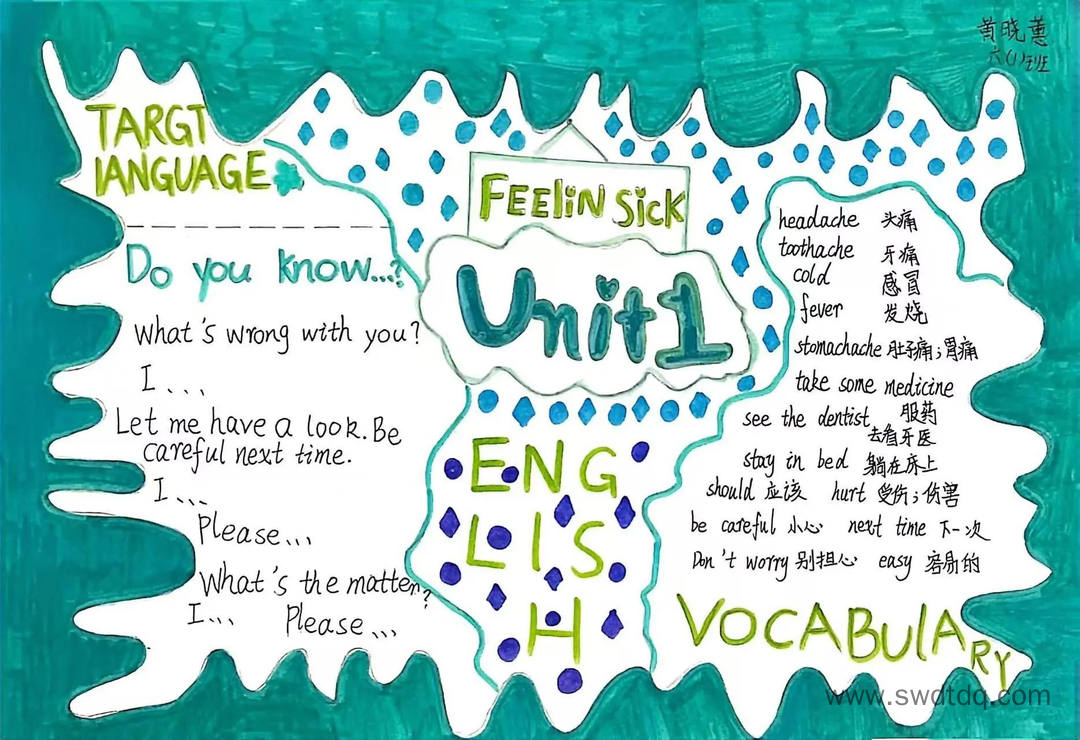 黄晓蕙
六(1)班
TARGT
LANGUAGE
FEElin Sick
Unit1
Do you know...?
What's wrong with you?
I...
Let me have a look. Be
careful next time.
I...
Please...
What's the matter?
I... Please...
ENG
LIS
H
headache 头痛
toothache 牙痛
cold 感冒
fever 发烧
stomachache 肚子痛;胃痛
take some medicine
服药
see the dentist
去看牙医
stay in bed 躺在床上
should 应该 hurt 受伤;伤害
be careful 小心 next time 下一次
Don't worry 别担心 easy 容易的
VOCABULARY
www.swdtdq.com